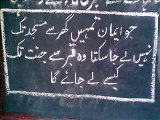 جو ایمان تمہیں گھر سے مسجد تک
نہیں لے جا سکتا وہ قبر سے جنت تک
کیسے لے جائے گا